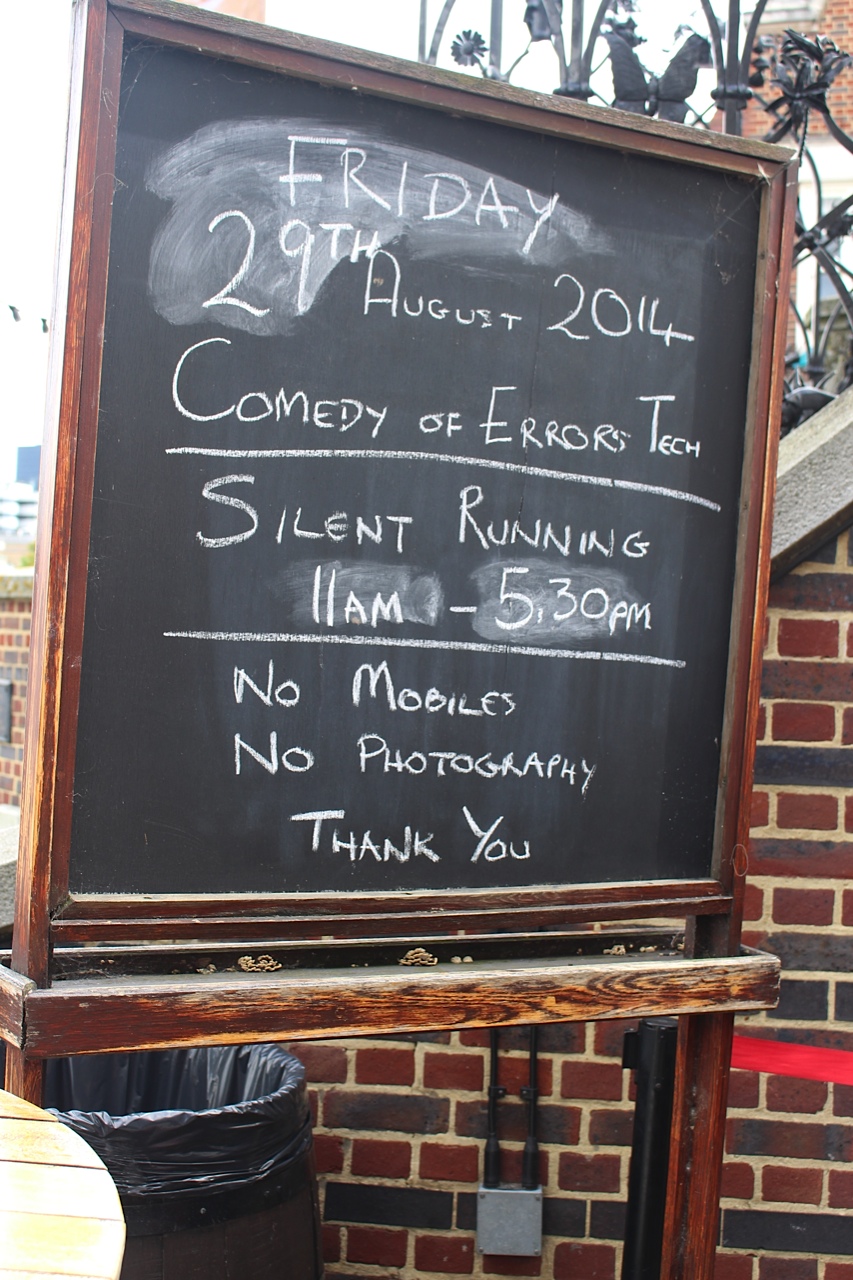 FRIDAY
29TH AUGUST 2014
COMEDY OF ERRORS TECH
SILENT RUNNING
11AM - 5.30PM
NO MOBILES
NO PHOTOGRAPHY
THANK YOU